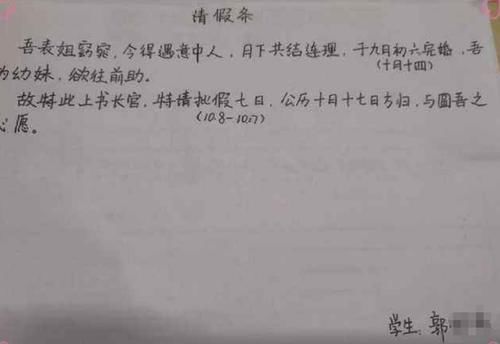 请假条
吾表姐窈窕，今得遇意中人，月下共结连理，于九月初六完婚，吾
(十月十四)
为幼妹，欲往前助。
故特此上书长官，特请批假七日，公历十月十七日方归，与圆吾之
(10.8-10.17)
心愿。
学生：郭